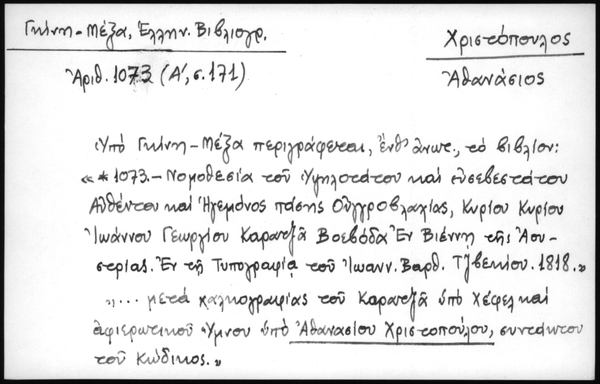 Γκίνη-Μέξα, Ἑλλην. Βιβλιογρ.
Χριστόπουλος
Ἀριθ. 1073 (Α', σ. 171)
Ἀθανάσιος
Ὑπό Γκίνη-Μέξα περιγράφεται, ἔνθ' ἀνωτ., τό βιβλίον:
«*1073.- Νομοθεσία τοῦ Ὑψηλοτάτου καί εὐσεβεστάτου
Αὐθέντου καί Ἡγεμόνος πάσης Οὐγγροβλαχίας, Κυρίου Κυρίου
Ἰωάννου Γεωργίου Καρατζᾶ Βοεβόδα Ἐν Βιέννῃ τῆς Ἀου-
στρίας. Ἐν τῇ Τυπογραφίᾳ τοῦ Ἰωανν. Βαρθ. Τζβεκίου. 1818.»
«... μετά χαλκογραφίας τοῦ Καρατζᾶ ὑπό Χέφελ καί
ἀφιερωτικοῦ Ὕμνου ὑπό Ἀθανασίου Χριστοπούλου, συντάκτου
τοῦ Κώδικος.»